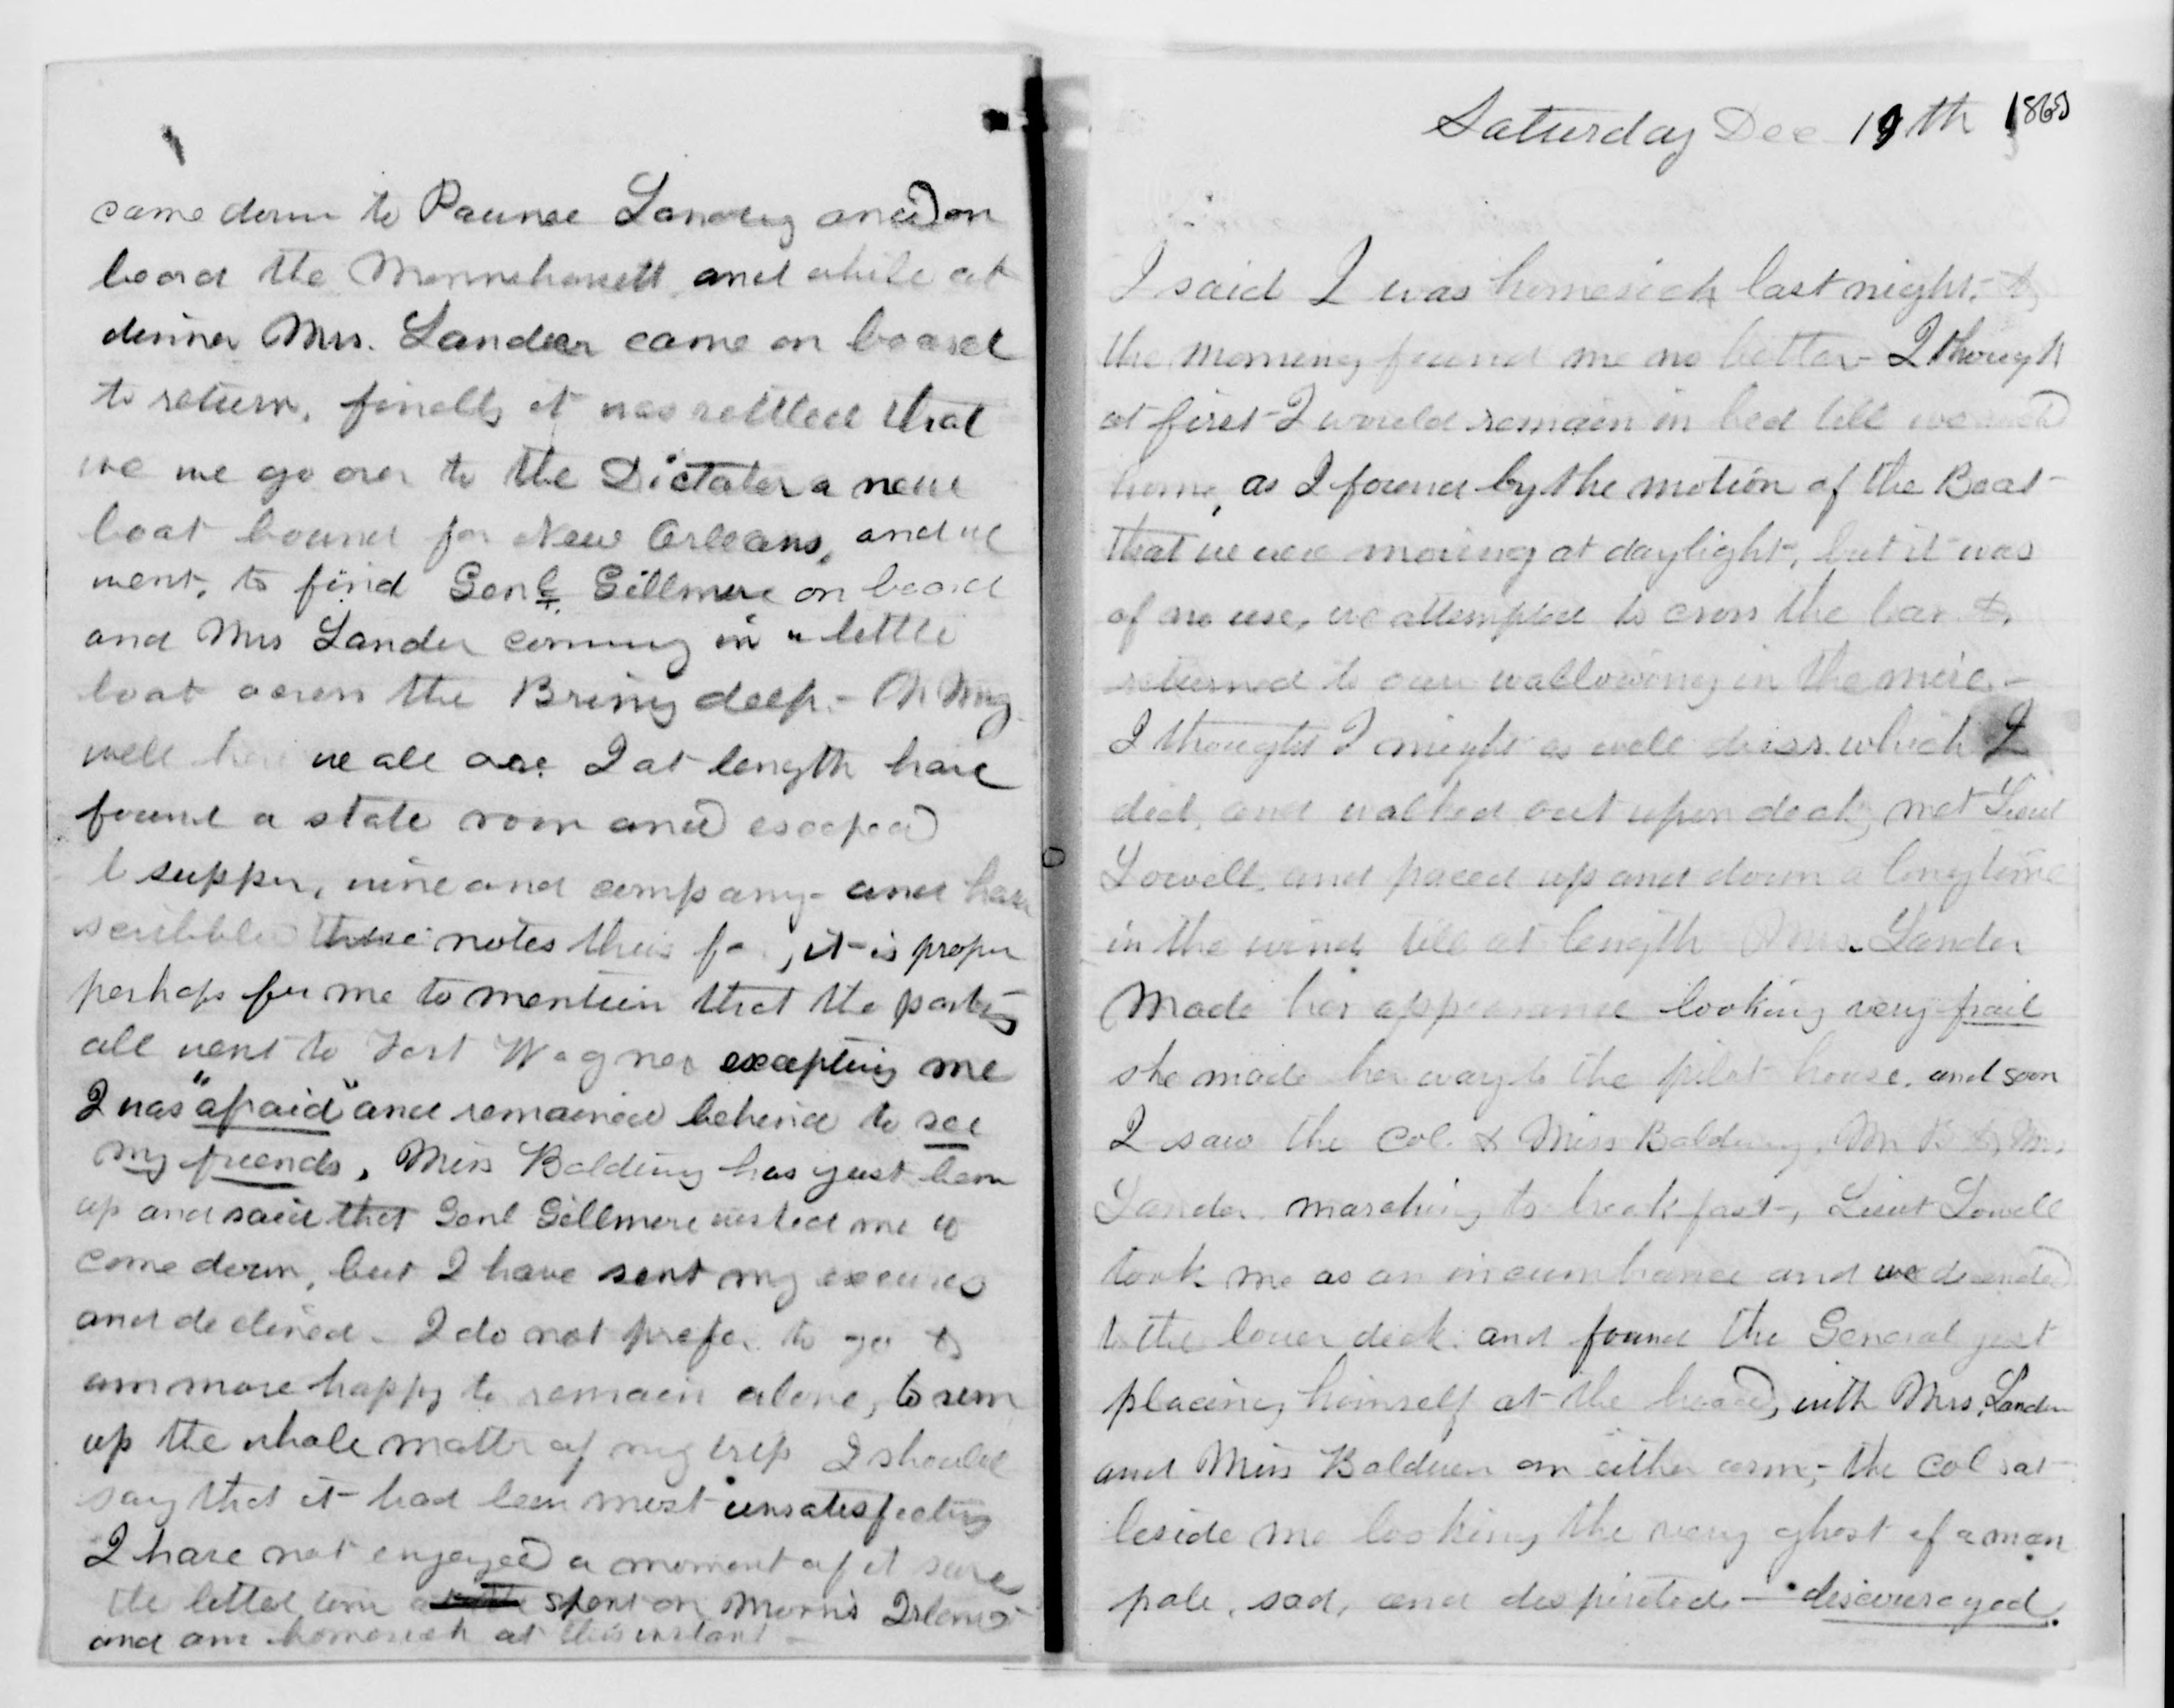 came down to Pawnee Landing and on
board the Monnohansett and while at
dinner Mrs. Lander came on board
to return, finally it was settled that
we we go over to the Dictator a new
boat bound for New Orleans, and we
went, to find Genl. Gillmore on board
and Mrs Lander coming in a little
boat across the Briny deep. -
well here we all are. I at length have
found a state room and escaped
supper, wine and company - and have
scribbled these notes thus far, it is proper
perhaps for me to mention that the party
all went to Fort Wagner excepting me
I was "afraid" and remained behind to see
my friends, Miss Balding has just been
up and said that Genl Gillmore wished me to
come down, but I have sent my excuses
and declined - I do not prefer to go &
am more happy to remain alone, to sum
up the whole matter of my trip I should
say that it had been most unsatisfactory
I have not enjoyed a moment of it save
the little time spent on Morris Island
and am homesick at this instant -
Saturday Dec 19th 1863
I said I was homesick last night, &
the morning found me no better - I thought
at first I would remain in bed till we
home, as I found by the motion of the Boat -
that we were moving at daylight, but it was
of no use, we attempted to cross the bar &
returned to our wallowing in the mire. -
I thought I might as well dress. which I
did, and walked out upon deck, met Lieut
Lowell, and paced up and down a long time
in the wind till at length Mrs. Lander
made her appearance looking very frail
she made her way to the pilot house. and soon
I saw the Col. & Miss Balding, Mr B & Mrs
Lander, marching to breakfast -, Lieut Lowell
took me as an incumbrance and we decended
to the lower deck. and found the General just
placing himself at the head, with Mrs. Lander
and Miss Balduen on either arm, - the Col sat
beside me looking the very ghost of a man
pale, sad, and despirited - discouraged.